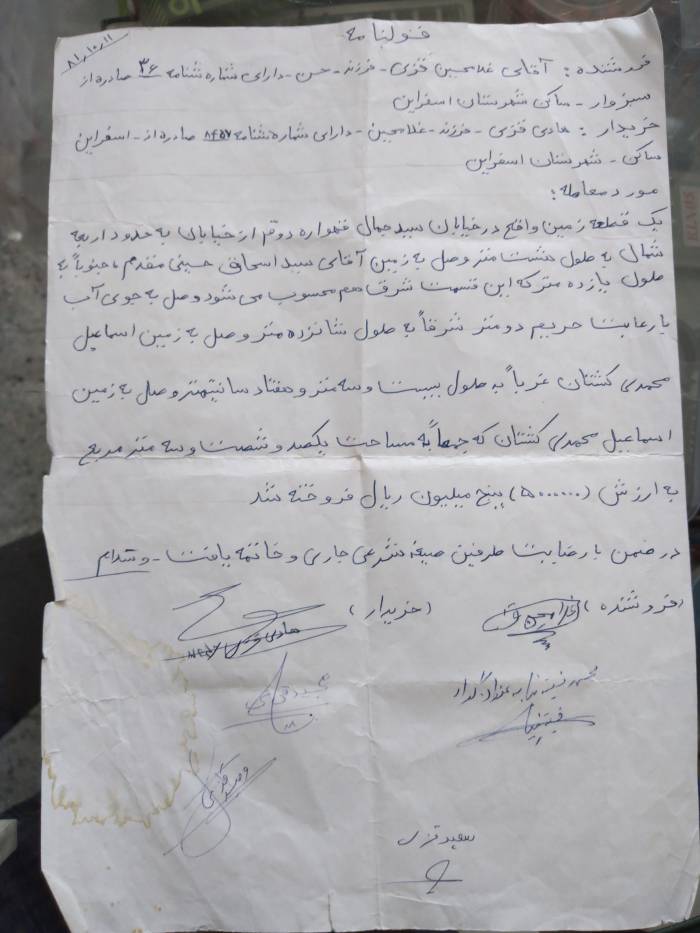 قولنامه
۸۱،۱۰،۱۱
فروشنده : آقای غلامحسین قزی - فرزند - حسن - دارای شماره شناسنامه ۳۶ صادره از
سبزوار - ساکن شهرستان اسفراین
خریدار : هادی قزی - فرزند - غلامحسین - دارای شماره شناسنامه ۸۴۵۷ صادره از - اسفراین
ساکن - شهرستان اسفراین
مورد معامله :
یک قطعه زمین واقع در خیابان سید جمال دوم از خیابان به حدود اربعه
شمال به طول هشت متر وصل به زمین آقای سید اسحاق حسینی مقدم ، جنوباً به
طول یازده متر که این قسمت شرق هم محسوب می شود وصل به جوی آب
با رعایت حریم دو متر شرقاً به طول شانزده متر وصل به زمین اسماعیل
محمدی کشتان غرباً به طول بیست و سه متر و هفتاد سانتیمتر وصل به زمین
اسماعیل محمدی کشتان که جمعاً به مساحت یکصد و شصت و سه متر مربع
به ارزش (۵۰۰۰۰۰۰) پنج میلیون ریال فروخته شد
در ضمن با رضایت طرفین صیغه شرعی جاری و خاتمه یافت - والسلام
(فروشنده) (خریدار)
هادی قزی
به عنوان گواه
وحید قزی
سعید قزی